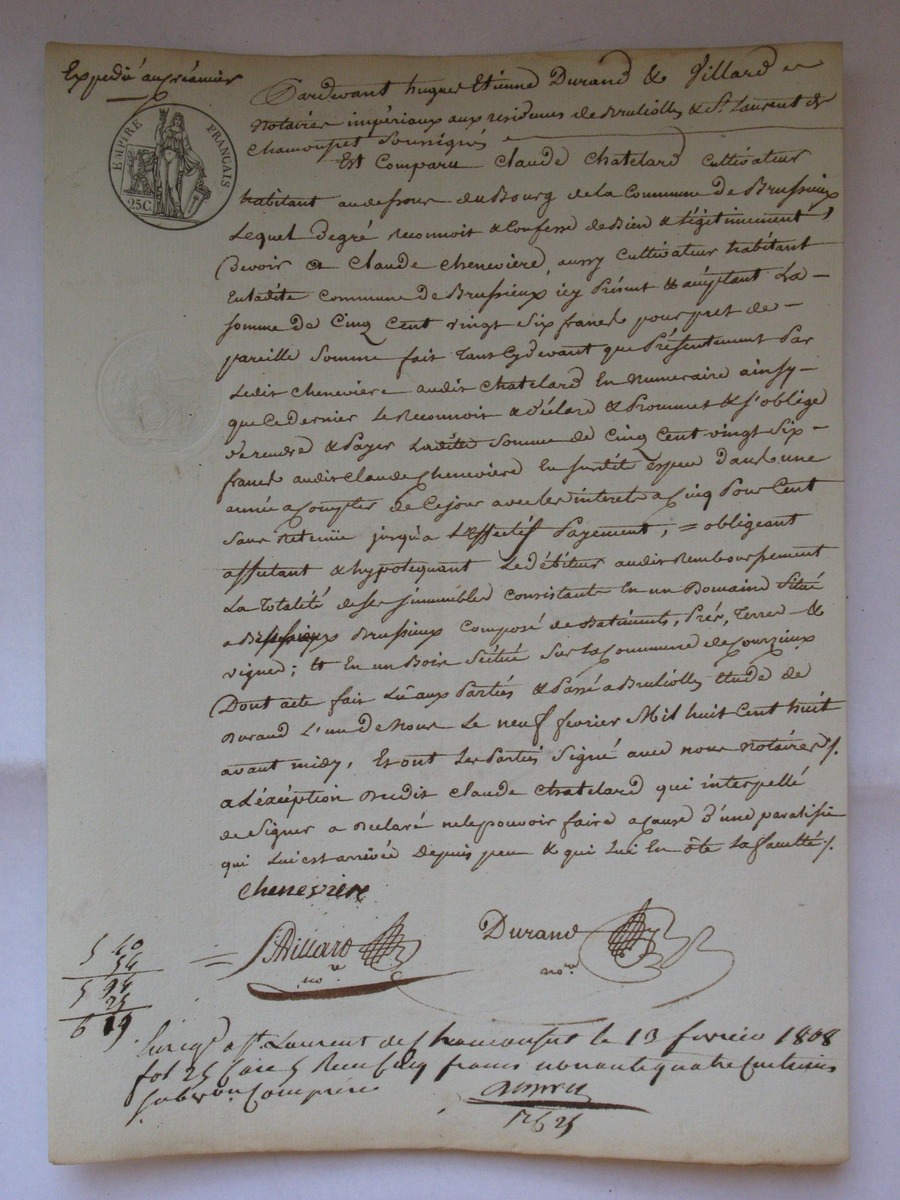 Expedié au créancier
EMPIRE FRANÇAIS
25C.
Pardevant hugues Etienne Durand & Villard
Notaires impériaux aux residences de Brulliolles & St. Laurent de
Chamousset Soussignés
Est Comparu Claude Chatelard Cultivateur
habitant au dessous du Bourg de la Commune de Brussieux
Lequel de gré reconnoit & Confesse de Bien & Légitimement
devoir a Claude Chenevière, aussy Cultivateur habitant
En ladite Commune de Brussieux icy Présent & acceptant La
somme de Cinq Cent vingt six francs pour pret de
pareille Somme fait tant Cydevant que Présentement Par
Ledit Chenevière audit Chatelard En Numeraire ainsy
que Ce dernier Le Reconnoit & déclare & Promet & s'oblige
de rendre & Payer Ladite Somme de Cinq Cent vingt Six
francs audit Claude Chenevière En susdit Espece dans une
année a Compter de Ce jour avec les interets a Cinq Pour Cent
Sans retenüe jusqu'a L'Effectif Payement; = obligeant
affectant & hypotequant Le débiteur audit Remboursement
La Totalité de ses jmmeubles Consistants En un Domaine Situé
a Brussieux Composé de Batiments, Prés, Terres &
vignes; & En un Bois Scitué Sur La Commune de Courzieux
Dont acte fait Lû aux Parties & Passé a Brulliolles Etude de
Durand L'un de Nous Le neuf février Mil huit Cent huit
avant midy, Et ont Les Parties Signé avec nous Notaires /.
a L'éxception dudit Claude Chatelard qui interpellé
de Signer a declaré ne le pouvoir faire a Cause d'une paralisie
qui Lui est arrivée Depuis peu & qui Lui En ôte La faculté /.
Chenevière
Villard
nore
Durand
nore
5 40
54
5 94
25
6 19
Enregé a St. Laurent de Chamousset le 13 fevrier 1808
fol 25 Case 5 Reçu Cinq francs nonante quatre Centimes
Subvon. Comprise